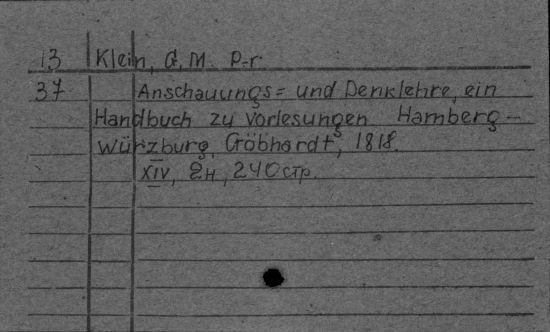 13 Klein, G. M. P-r.
37 Anschauungs= und Denklehre, ein
Handbuch zu vorlesungen Hamberg-
würzburg, Göbhardt, 1818.
XIV, 2н, 240 стр.